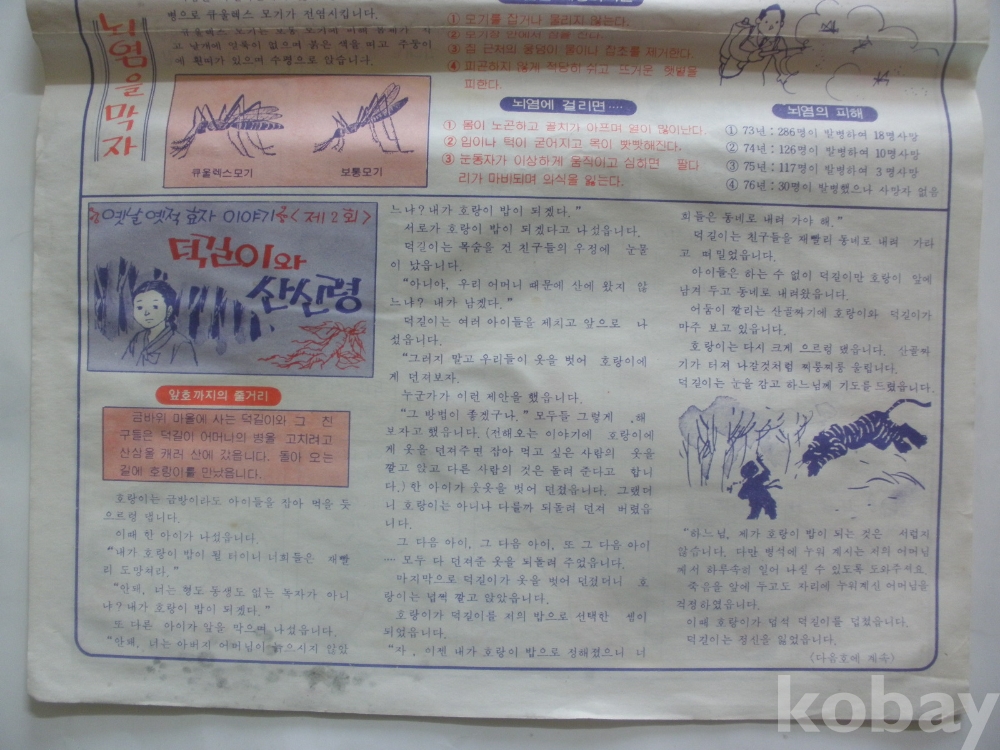 뇌염을 막자
병으로 큐울렉스 모기가 전염시킵니다.
큐울렉스 모기는 보통 모기에 비해 몸체가 작
고 날개에 얼룩이 없으며 붉은 색을 띠고 주둥이
에 흰띠가 있으며 수평으로 앉습니다.
큐울렉스모기
보통모기
① 모기를 잡거나 물리지 않는다.
② 모기장 안에서 잠을 잔다.
③ 집 근처의 웅덩이 풀이나 잡초를 제거한다.
④ 피곤하지 않게 적당히 쉬고 뜨거운 햇빛을
피한다.
뇌염에 걸리면‥‥
① 몸이 노곤하고 골치가 아프며 열이 많이난다.
② 입이나 턱이 굳어지고 목이 빳빳해진다.
③ 눈동자가 이상하게 움직이고 심하면 팔다
리가 마비되며 의식을 잃는다.
뇌염의 피해
① 73년 : 286명이 발병하여 18명사망
② 74년 : 126명이 발병하여 10명사망
③ 75년 : 117명이 발병하여 3명사망
④ 76년 : 30명이 발병했으나 사망자 없음
옛날 옛적 효자 이야기 <제2회>
덕길이와
산신령
앞호까지의 줄거리
금바위 마을에 사는 덕길이와 그 친
구들은 덕길이 어머니의 병을 고치려고
산삼을 캐러 산에 갔읍니다. 돌아 오는
길에 호랑이를 만났읍니다.
호랑이는 금방이라도 아이들을 잡아 먹을 듯
으르렁 댑니다.
이때 한 아이가 나섰읍니다.
"내가 호랑이 밥이 될 터이니 너희들은 재빨
리 도망쳐라."
"안돼, 너는 형도 동생도 없는 독자가 아니
냐? 내가 호랑이 밥이 되겠다."
또 다른 아이가 앞을 막으며 나섰읍니다.
"안돼, 너는 아버지 어머님이 늙으시지 않았
느냐? 내가 호랑이 밥이 되겠다."
서로가 호랑이 밥이 되겠다고 나섰읍니다.
덕길이는 목숨을 건 친구들의 우정에 눈물
이 났읍니다.
"아니야, 우리 어머니 때문에 산에 왔지 않
느냐? 내가 남겠다."
덕길이는 여러 아이들을 제치고 앞으로 나
섰읍니다.
"그러지 말고 우리들이 옷을 벗어 호랑이에
게 던져보자.
누군가가 이런 제안을 했읍니다.
"그 방법이 좋겠구나." 모두들 그렇게 해
보자고 했읍니다. (전해오는 이야기에 호랑이에
게 옷을 던져주면 잡아 먹고 싶은 사람의 옷을
깔고 앉고 다른 사람의 것은 돌려 준다고 합니
다.) 한 아이가 웃옷을 벗어 던졌읍니다. 그랬더
니 호랑이는 아니나 다를까 되돌려 던져 버렸읍
니다.
그 다음 아이, 그 다음 아이, 또 그 다음 아이
‥‥ 모두 다 던져준 옷을 되돌려 주었읍니다.
마지막으로 덕길이가 옷을 벗어 던졌더니 호
랑이는 넙쩍 깔고 앉았읍니다.
호랑이가 덕길이를 저의 밥으로 선택한 셈이
되었읍니다.
"자, 이젠 내가 호랑이 밥으로 정해졌으니 너
희들은 동네로 내려 가야 해."
덕길이는 친구들을 재빨리 동네로 내려 가라
고 떠 밀었읍니다.
아이들은 하는 수 없이 덕길이만 호랑이 앞에
남겨 두고 동네로 내려왔읍니다.
어둠이 깔리는 산골짜기에 호랑이와 덕길이가
마주 보고 있읍니다.
호랑이는 다시 크게 으르렁 댔읍니다. 산골짜
기가 터져 나갈것처럼 찌룽찌룽 울립니다.
덕길이는 눈을 감고 하느님께 기도를 드렸읍니다.
"하느님, 제가 호랑이 밥이 되는 것은 서럽지
않습니다. 다만 병석에 누워 계시는 저의 어머님
께서 하루속히 일어 나실 수 있도록 도와주세요
죽음을 앞에 두고도 자리에 누워계신 어머님을
걱정하였읍니다.
이때 호랑이가 덥석 덕길이를 덮쳤읍니다.
덕길이는 정신을 잃었읍니다.
<다음호에 계속>
kobay